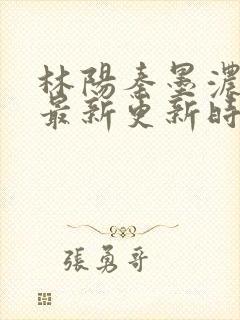 林陽秦墨濃
最新更新時
張勇哥